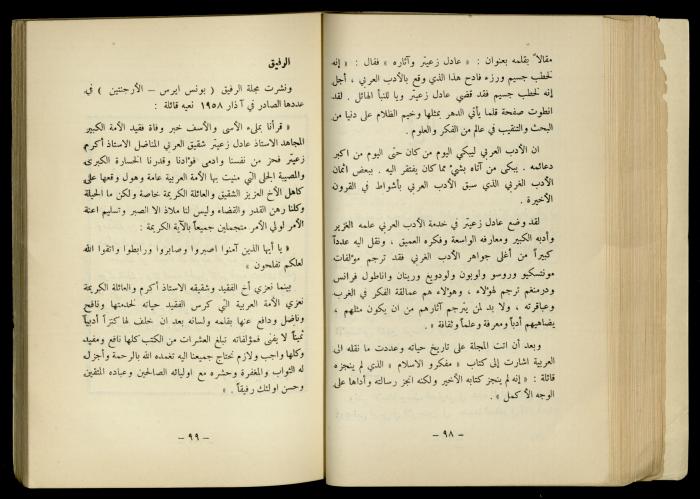 مقالاً بقلمه بعنوان : « عادل زعيتر وآثاره » فقال : « إنه
لخطب جسيم ورزء فادح هذا الذي وقع بالأدب العربي ، أجل
إنه لخطب جسيم فقد قضي عادل زعيتر ويا للنبأ الهائل . لقد
انطوت صفحة قلما يأتي الدهر بمثلها وخيم الظلام على دنيا من
البحث والتنقيب في عالم من الفكر والعلوم .
ان الأدب العربي ليبكي اليوم من كان حتى اليوم من اكبر
دعائمه . يبكى من آتاه بشيء مما كان يفتقر اليه . ببعض اثمان
الأدب الغربي الذي سبق الأدب العربي بأشواط في القرون
الأخيرة .
لقد وضع عادل زعيتر في خدمة الأدب العربي علمه الغزير
وأدبه الكبير ومعارفه الواسعة وفكره العميق ، ونقل اليه عدداً
كبيراً من أغلى جواهر الأدب الغربي فقد ترجم مؤلفات
مونتسكيو وروسو ولوبون ولودويغ ورينان واناطول فرانس
ودرمنغم ترجم لهؤلاء ، وهؤلاء هم عمالقة الفكر في الغرب
وعباقرته ، ولا بد لمن يترجم آثارهم من ان يكون مثلهم ،
يضاهيهم أدباً ومعرفة وعلماً وثقافة » .
وبعد أن اتت المجلة على تاريخ حياته وعددت ما نقله الى
العربية اشارت إلى كتاب « مفكرو الاسلام » الذي لم ينجزه
قائلة : « إنه لم ينجز كتابه الأخير ولكنه انجز رسالته وأداها على
الوجه الأكمل » .
- ٩٨ -
الرفيق
ونشرت مجلة الرفيق ( بونس ايرس – الأرجنتين ) في
عددها الصادر في آذار ١٩٥٨ نعيه قائلة :
« قرأنا بملء الأسى والأسف خبر وفاة فقيد الأمة الكبير
المجاهد الاستاذ عادل زعيتر شقيق العربي المناضل الاستاذ أكرم
زعيتر فحز من نفسنا وادمى فؤادنا وقدرنا الخسارة الكبرى
والمصيبة الجلى التي منيت بها الأمة العربية عامة وهول وقعها على
كاهل الأخ العزيز الشقيق والعائلة الكريمة خاصة ولكن ما الحيلة
وكلنا رهن القدر والقضاء وليس لنا ملاذ الا الصبر وتسليم اعنة
الأمر لولي الأمر متجملين جميعاً بالآية الكريمة :
« يا أيها الذين آمنوا اصبروا وصابروا ورابطوا واتقوا الله
لعلكم تفلحون »
بينما نعزي أخ الفقيد وشقيقه الاستاذ اكرم والعائلة الكريمة
نعزي الأمة العربية التي كرس الفقيد حياته لخدمتها ونافح
وناضل ودافع عنها بقلمه ولسانه بعد ان خلف لها كنزاً أدبياً
ثميناً لا يفنى فمؤلفاته تبلغ العشرات من الكتب كلها نافع ومفيد
وكلها واجب ولازم نحتاج جميعنا اليه تغمده الله بالرحمة وأجزل
له الثواب والمغفرة وحشره مع اوليائه الصالحين وعباده المتقين
وحسن اولئك رفيقاً . »
- ٩٩ -